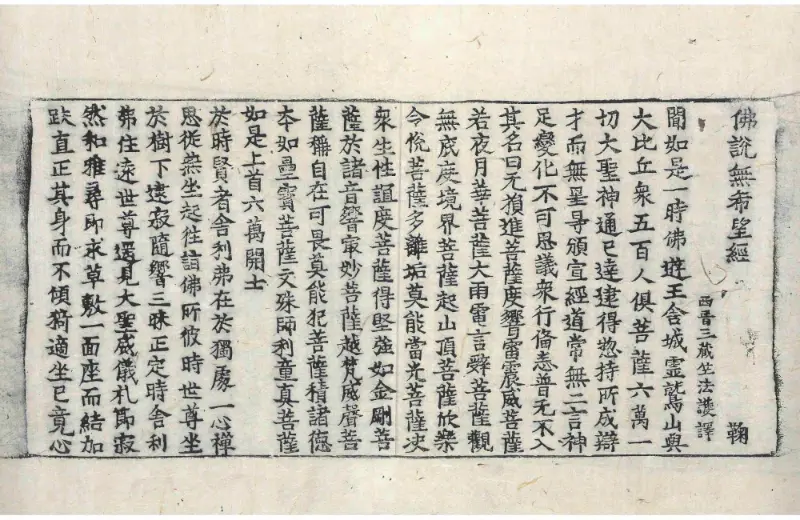 佛說無希望經 鞠
西晉三藏竺法護譯
聞如是一時佛遊王舍城靈鷲山與
大比丘衆五百人俱菩薩六萬一
切大聖神通已達逮得惣持所成辯
才而無罣㝵頒宣經道常無二言神
足變化不可思議衆行俻悉普无不入
其名曰无損進菩薩度響雷震威菩薩
若夜月華菩薩大雨雷音辭菩薩觀
無底度境界菩薩起山頂菩薩欣樂
令悅菩薩多離垢莫能當光菩薩決
衆生性誼度菩薩得堅強如金剛菩
薩於諸音響寂妙菩薩越梵威聲菩
薩稱自在可畏莫能犯菩薩積諸德
本如疊寶菩薩文殊師利童真菩薩
如是上首六萬開士
於時賢者舍利弗在於獨處一心禪
思從燕坐起往詣佛所彼時世尊坐
於樹下逮寂隨響三昧正定時舍利
弗住遠世尊遥見大聖威儀礼節寂
然和雅尋即求草敷一面座而結加
趺直正其身而不傾猗適坐已竟心